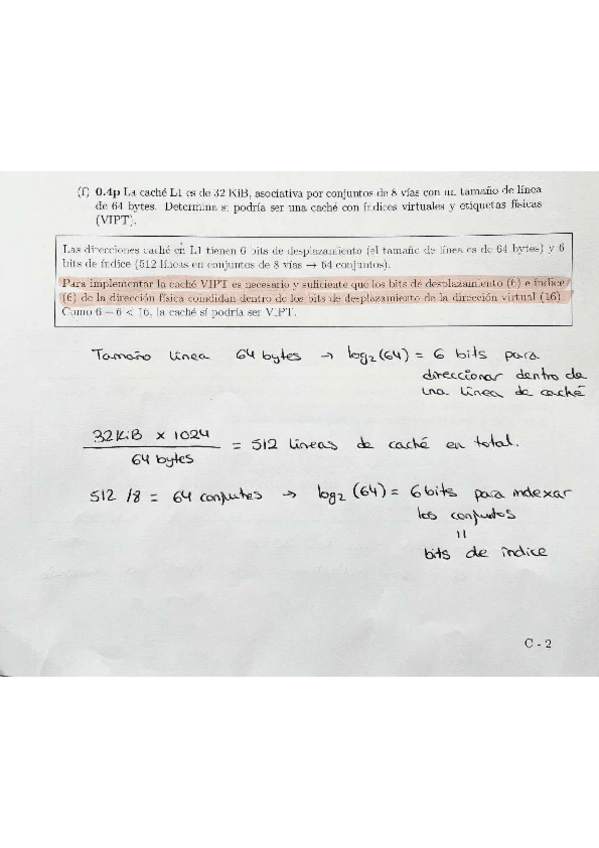 (f) 0.4p La caché L1 es de 32 KiB, asociativa por conjuntos de 8 vías con un tamaño de línea
de 64 bytes. Determina si podría ser una caché con índices virtuales y etiquetas físicas
(VIPT).
Las direcciones caché en L1 tienen 6 bits de desplazamiento (el tamaño de línea es de 64 bytes) y 6
bits de índice (512 líneas en conjuntos de 8 vías → 64 conjuntos).
Para implementar la caché VIPT es necesario y suficiente que los bits de desplazamiento (6) e índice
(6) de la dirección física coincidan dentro de los bits de desplazamiento de la dirección virtual (16)
Como 6 + 6 < 16, la caché sí podría ser VIPT.
Tamaño línea 64 bytes → log₂(64) = 6 bits para
direccionar dentro de
una línea de caché
32KiB x 1024
64 bytes
= 512 líneas de caché en total.
512 /8 = 64 conjuntos → log₂ (64) = 6 bits para indexar
los conjuntos
=
bits de índice
C - 2